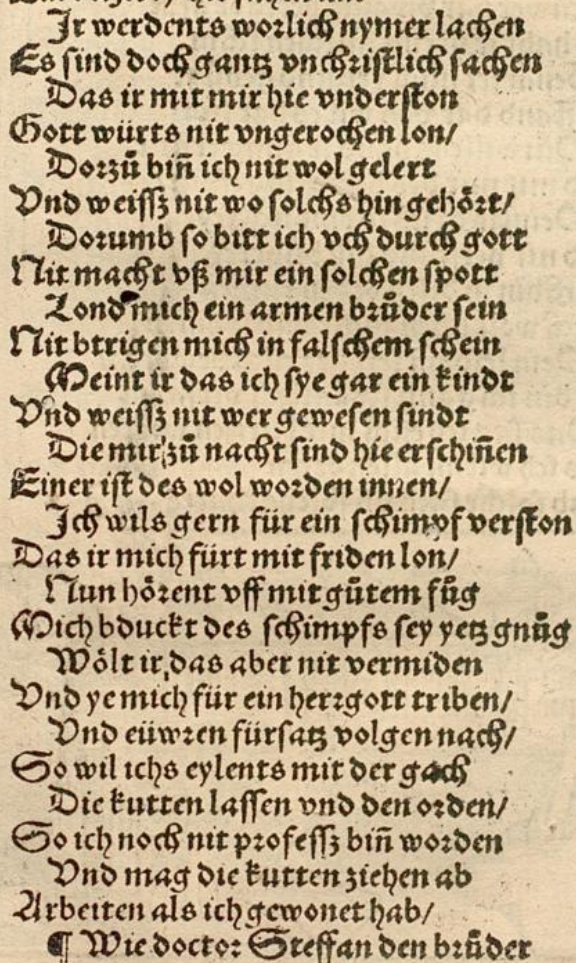 Ir werdents worlich nymer lachen
Es sind doch gantz vnchristlich sachen
Das ir mit mir hie vnderston
Gott würts nit vngerochen lon/
Dorzů biñ ich nit wol gelert
Vnd weissz nit wo solchs hin gehört/
Dorumb so bitt ich vch durch gott
Nit macht vß mir ein solchen spott
Lond mich ein armen brůder sein
Nit btrigen mich in falschem schein
Meint ir das ich sye gar ein kindt
Vnd weissz nit wer gewesen sindt
Die mir zů nacht sind hie erschiñen
Einer ist des wol worden innen/
Ich wils gern für ein schimpf verston
Das ir mich fürt mit friden lon/
Nun hörent vff mit gůtem fůg
Mich bduckt des schimpfs sey yetz gnůg
Wölt ir das aber nit vermiden
Vnd ye mich für ein herrgott triben/
Vnd eüwren fürsatz volgen nach/
So wil ichs eylents mit der gach
Die kutten lassen vnd den orden/
So ich noch nit professz biñ worden
Vnd mag die kutten ziehen ab
Arbeiten als ich gewonet hab/
¶ Wie doctor Steffan den brůder